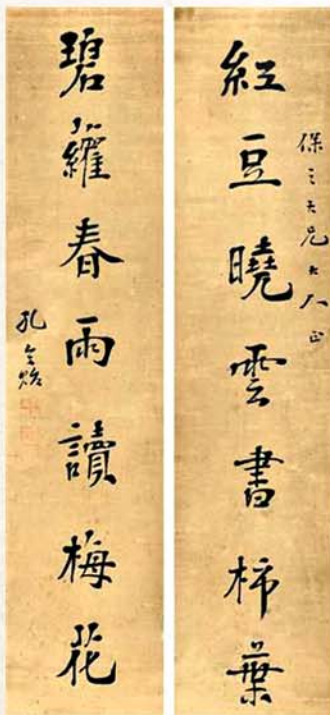 紅豆曉雲書柿葉
保三大兄大人正
碧蘿春雨讀梅花
孔